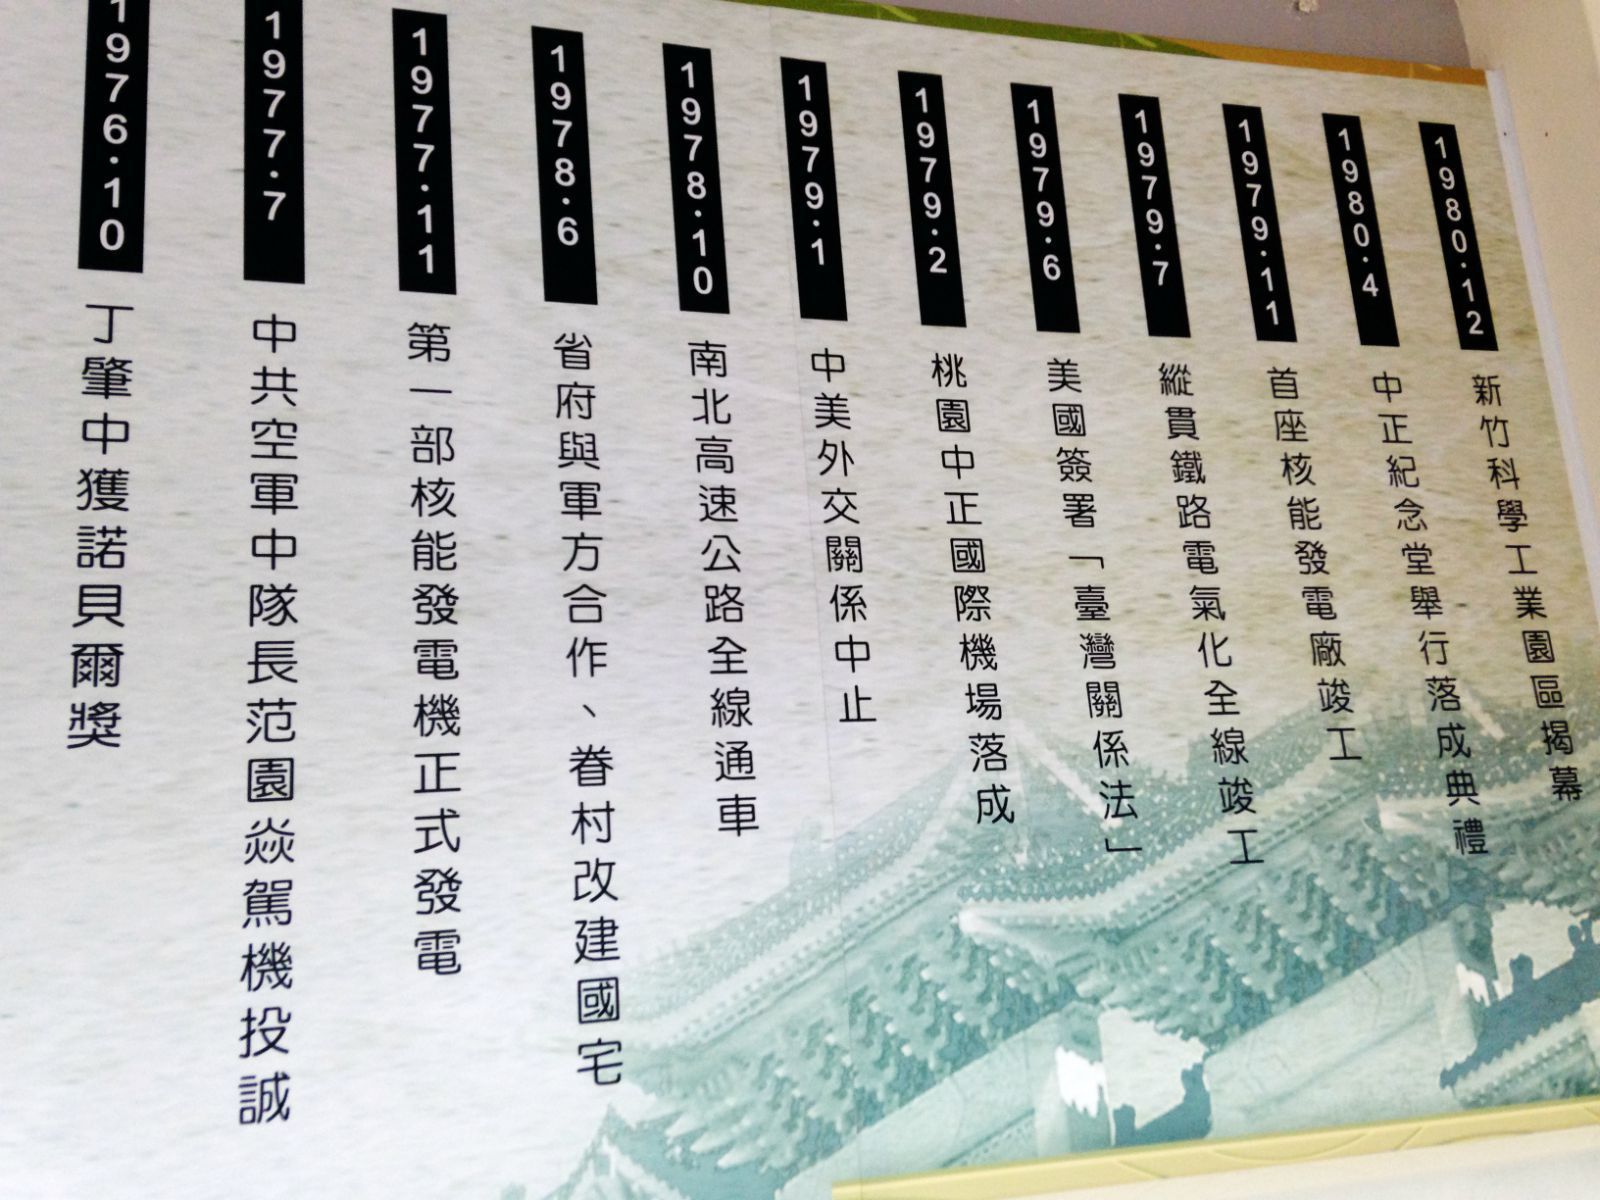 1976.10
丁肇中獲諾貝爾獎
1977.7
中共空軍中隊長范園焱駕機投誠
1977.11
第一部核能發電機正式發電
1978.6
省府與軍方合作、眷村改建國宅
1978.10
南北高速公路全線通車
1979.1
中美外交關係中止
1979.2
桃園中正國際機場落成
1979.6
美國簽署「臺灣關係法」
1979.7
縱貫鐵路電氣化全線竣工
1979.11
首座核能發電廠竣工
1980.4
中正紀念堂舉行落成典禮
1980.12
新竹科學工業園區揭幕